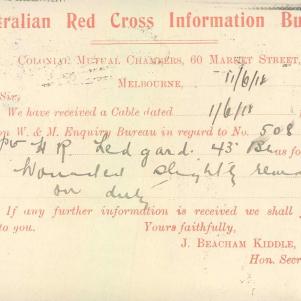 tralian Red Cross Information Bu
Colonial Mutual Chambers, 60 Market Street,
Melbourne, 11/6/18
Sir,
We have received a Cable dated 1/6/18
on W. & M. Enquiry Bureau in regard to No. 508
H R Ledgard 43 Bn as fo
Wounded slightly rema
on duty
If any further information is received we shall
to you. Yours faithfully,
J. BEACHAM KIDDLE,
Hon. Secr